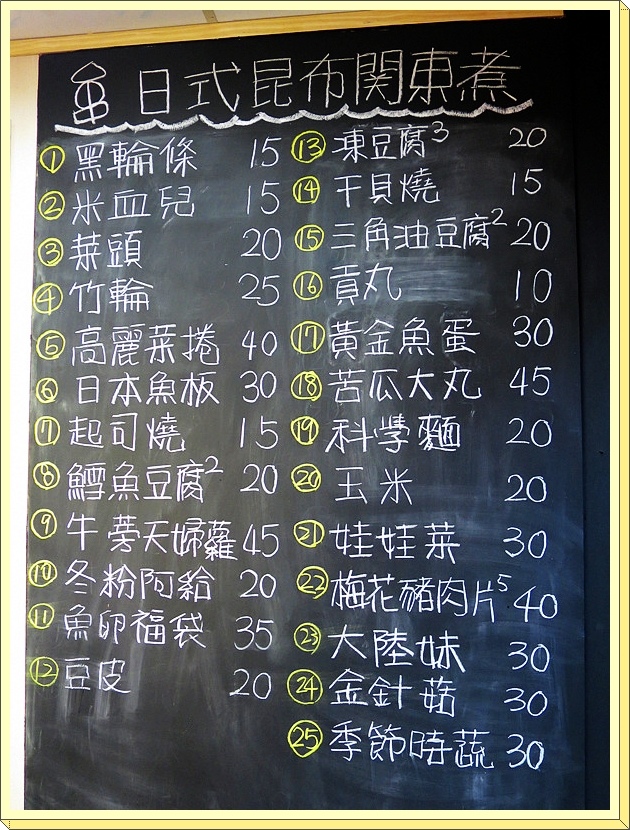 日式昆布関東煮
① 黑輪條 15
② 米血兒 15
③ 菜頭 20
④ 竹輪 25
⑤ 高麗菜捲 40
⑥ 日本魚板 30
⑦ 起司燒 15
⑧ 鱈魚豆腐2 20
⑨ 牛蒡天婦羅 45
⑩ 冬粉阿給 20
⑪ 魚卵福袋 35
⑫ 豆皮 20
⑬ 凍豆腐3 20
⑭ 干貝燒 15
⑮ 三角油豆腐2 20
⑯ 貢丸 10
⑰ 黃金魚蛋 30
⑱ 苦瓜大丸 45
⑲ 科學麵 20
⑳ 玉米 20
㉑ 娃娃菜 30
㉒ 梅花豬肉片5 40
㉓ 大陸妹 30
㉔ 金針菇 30
㉕ 季節時蔬 30